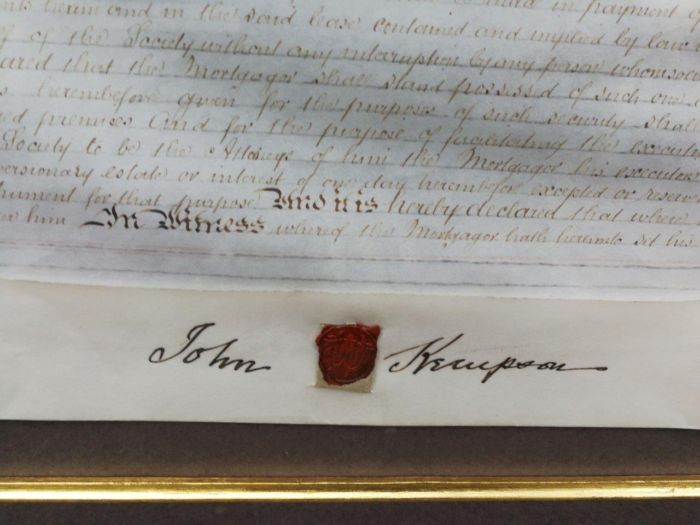 herein and in the said lease contained and implied by law
of the Society without any interruption by any person whomsoe
ared that the Mortgagor shall stand possessed of such one
hereinbefore given for the purposes of such security shall
ed premises And for the purpose of facilitating the execution
Society to be the Attorneys of him the Mortgagor his executors
versionary estate or interest of one day hereinbefore excepted or reserv
trument for that purpose And it is hereby declared that where
him In Witness whereof the Mortgagor hath hereunto set his
John Kempson